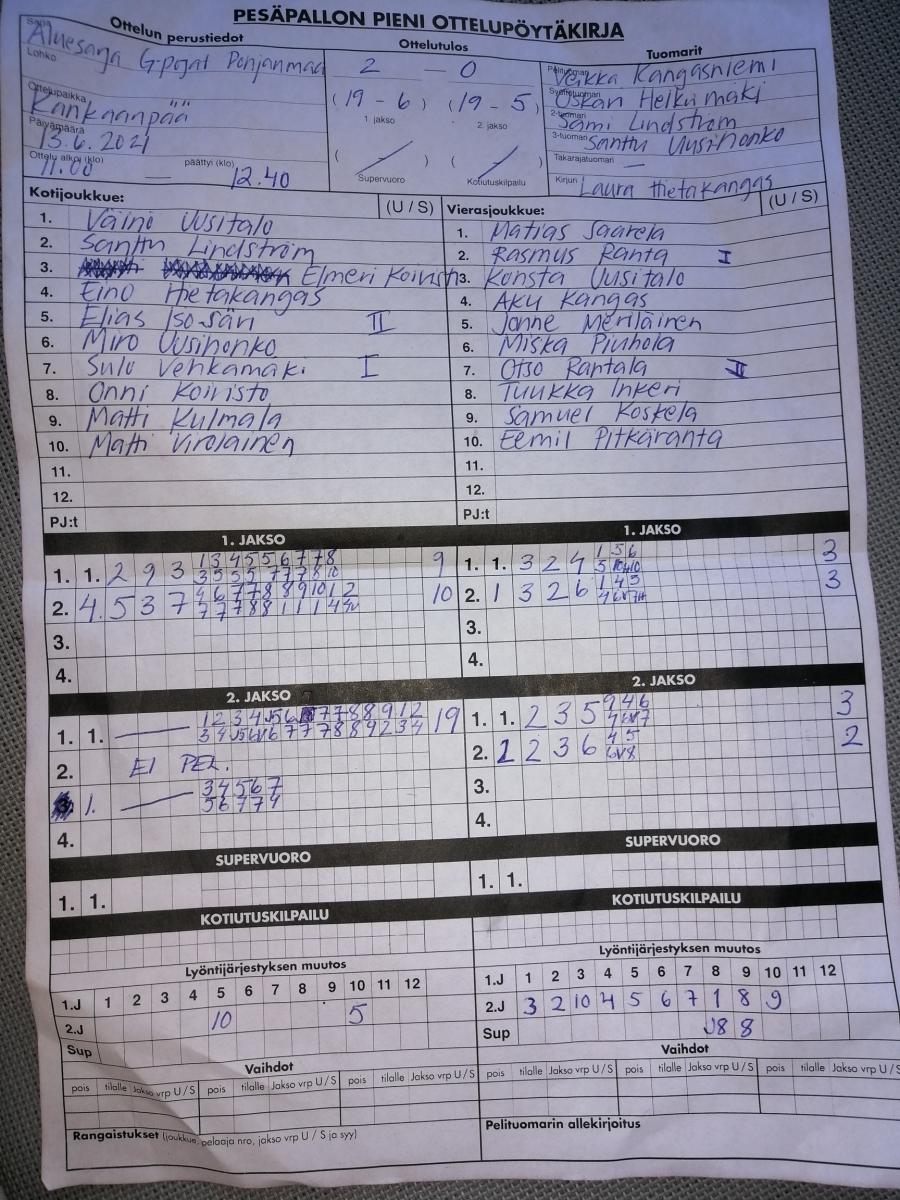 PESÄPALLON PIENI OTTELUPÖYTÄKIRJA
Ottelun perustiedot
Ottelutulos
Tuomarit
Sarja Aluesarja G-pojat Pohjanmaa
Lohko
Ottelupaikka
Kankaanpää
Päivämäärä
13.6.2021
Ottelu alkoi (klo) 11.00 — päättyi (klo) 12.40
2 — 0
(19 - 6) (19 - 5)
1. jakso 2. jakso
( / ) ( / )
Supervuoro Kotiutuskilpailu
Pelituomari Veikka Kangasniemi
Syöttötuomari Oskari Heikinmäki
2-tuomari Sami Lindström
3-tuomari Santtu Uusihonko
Takarajatuomari —
Kirjuri Laura Hietakangas
Kotijoukkue: (U / S)
1. Väinö Uusitalo
2. Santtu Lindström
3. Elmeri Koivisto
4. Eino Hietakangas
5. Elias Iso-säri II
6. Miro Uusihonko
7. Sulo Vehkamäki I
8. Onni Koivisto
9. Matti Kulmala
10. Matti Virolainen
11.
12.
PJ:t
Vierasjoukkue: (U / S)
1. Matias Saarela
2. Rasmus Ranta I
3. Konsta Uusitalo
4. Aku Kangas
5. Janne Meriläinen
6. Miska Piuhola
7. Otso Rantala II
8. Tuukka Inkeri
9. Samuel Koskela
10. Eemil Pitkäranta
11.
12.
PJ:t
1. JAKSO
1. 1. 2 9 3 1 3 4 5 5 6 7 7 8 9
2. 4. 5 3 7 4 6 7 7 8 8 9 10 1 2 10
3.
4.
1. JAKSO
1. 1. 3 2 4 1 5 6 3
2. 1 3 2 6 1 4 5 3
3.
4.
2. JAKSO
1. 1. — 19
2. EI PEL.
1. — 3 4 5 6 7
5 6 7 7 4
4.
2. JAKSO
1. 1. 2 3 5 9 4 6 3
2. 1 2 3 6 4 5 2
3.
4.
SUPERVUORO
1. 1.
SUPERVUORO
1. 1.
KOTIUTUSKILPAILU
KOTIUTUSKILPAILU
Lyöntijärjestyksen muutos
1.J 1 2 3 4 5 6 7 8 9 10 11 12
2.J 10 5
Sup
Lyöntijärjestyksen muutos
1.J 1 2 3 4 5 6 7 8 9 10 11 12
2.J 3 2 10 4 5 6 7 1 8 9
Sup J8 8
Vaihdot
pois tilalle Jakso vrp U / S pois tilalle Jakso vrp U / S pois tilalle Jakso vrp U / S
Vaihdot
pois tilalle Jakso vrp U / S pois tilalle Jakso vrp U / S pois tilalle Jakso vrp U / S
Rangaistukset (joukkue, pelaaja nro, jakso vrp U / S ja syy)
Pelituomarin allekirjoitus